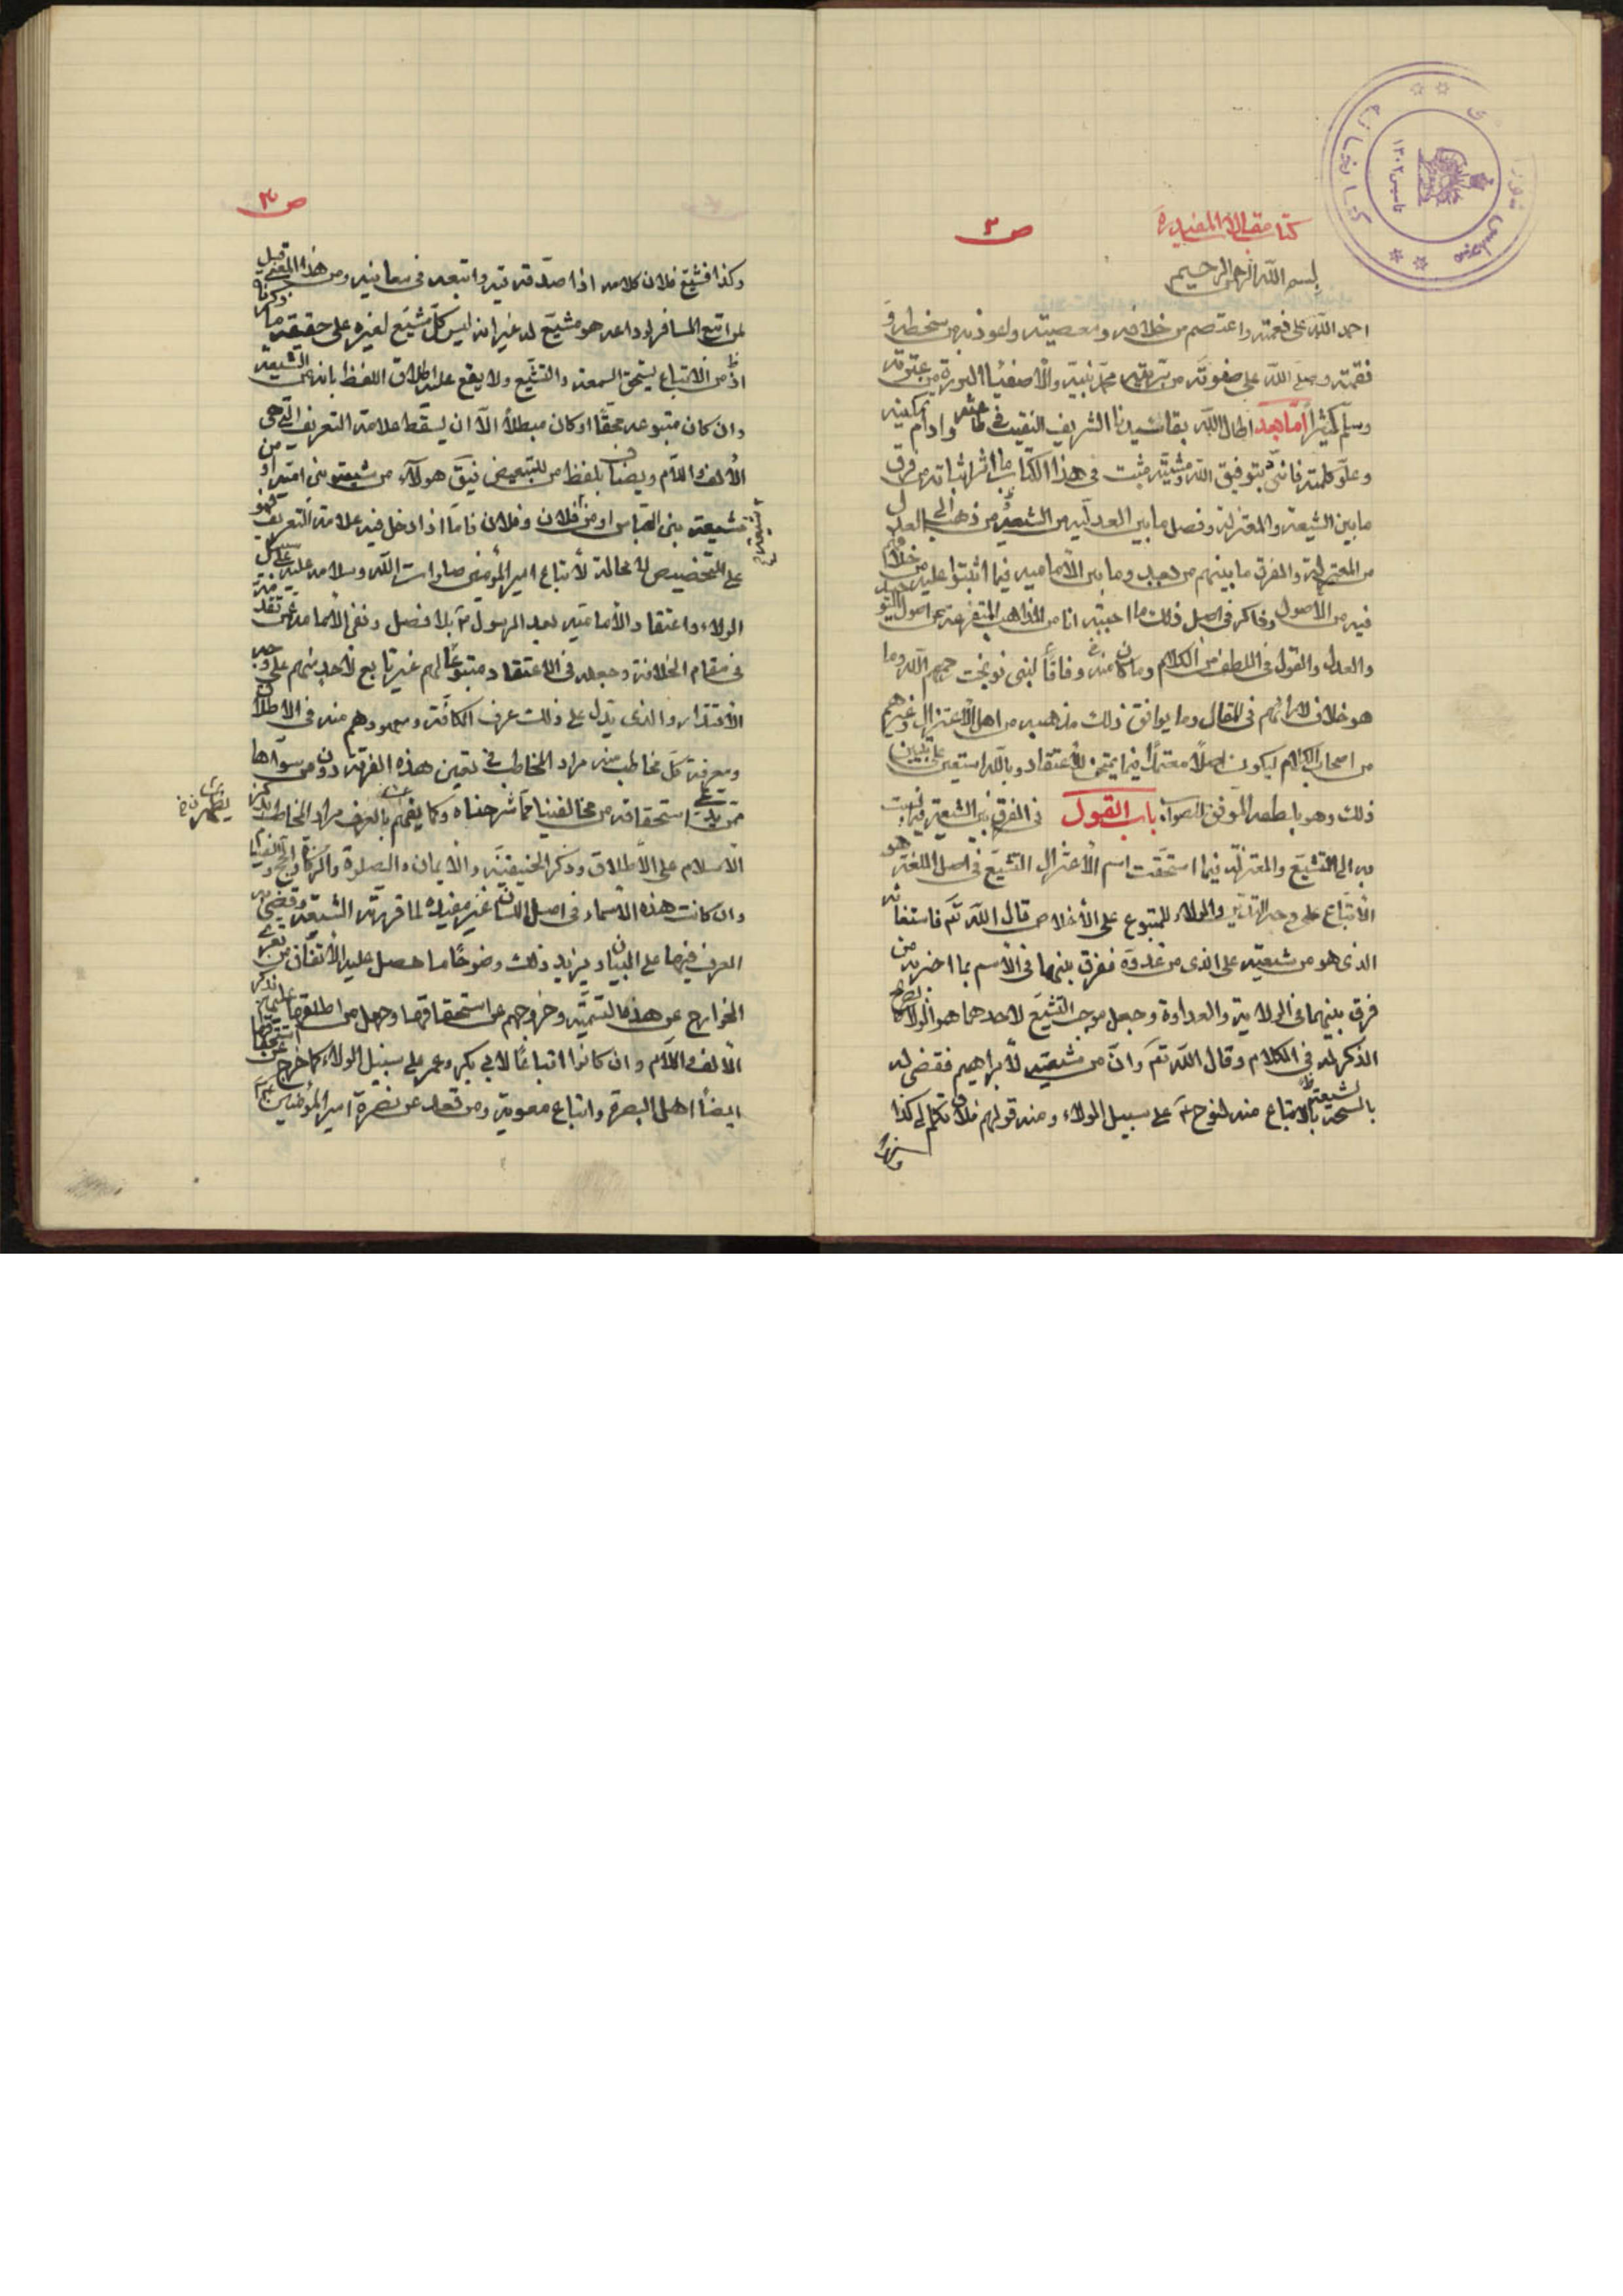 ص ٣
كتاب مقالات المفيد ره
بسم الله الرحمن الرحيم
احمد الله على نعمته واعتصم من خلافه ومعصيته واعوذ به من سخطه و
نقمته وصلى الله على صفوته من بريته محمد نبيه والاصفياء البررة من عترته
وسلم كثيرا اما بعد اطال الله بقاء سيدنا الشريف النقيب في وادام تمكينه
وعلو كلمته فانني بتوفيق الله ومشيته مثبت في هذا الكتاب ما اثر اثباته من فرق
ما بين الشيعة والمعتزلة وفصل ما بين العدلية من الشيعة ومن ذهب الى العدل
من المعتزلة والفرق ما بينهم من بعد وما بين الامامية فيما اتفقوا عليه من خلافهم
فيه من الاصول وذاكر في اصل ذلك ما اجتبيته انا من المذاهب المتفرعة عن اصول التوحيد
والعدل والقول في اللطف من الكلام وما كان منه وفاقا لبني نوبخت رحمهم الله وما
هو خلاف لارائهم في المقال وما يوافق ذلك مذهبه من اهل الاعتزال وغيرهم
من اصحاب الكلام ليكون اصلا معتمدا فيما يمتحن للاعتقاد وبالله استعين على تبيين
ذلك وهو بلطفه الموفق للصواب باب القول في الفرق بين الشيعة فيما نسبت
به الى التشيع والمعتزلة فيما استحقت اسم الاعتزال التشيع في اصل اللغة هو
الاتباع على وجه التدين والولاء للمتبوع على الاخلاص قال الله تعم فاستغاثه
الذي هو من شيعته على الذي من عدوه ففرق بينهما في الاسم بما اخبر به من
فرق بينهما في الولاية والعداوة وجعل موجب التشيع لاحدهما هو الولاء بصريح
الذكر له في الكلام وقال الله تعم وان من شيعته لابراهيم فقضى له
بالسمة بالاتباع منه لنوح ع على سبيل الولاء ومنه قولهم فلان تكلم في كذا
ص ٤
وكذا فشيع فلان كلامه اذا صدقه فيه واتبعه في معانيه ومن هذا المعنى قيل
لمن اتبع المسافر لوداعه هو مشيع له غير انه ليس كل مشيع لغيره على حقيقة ما ذكرناه
من الاتباع يستحق السمة والتشيع ولا يقع عليه اطلاق اللفظ بانه من الشيعة
وان كان متبوعه محقا او كان مبطلا الا ان يسقط علامة التعريف التي هي
الالف واللام ويضاف بلفظ من للتبعيض فيق هولاء من شيعة بني امية او من
شيعة بني العباس او من فلان وفلان فاما اذا ادخل فيه علامة التعريف فهو
على التخصيص لا محالة لاتباع امير المؤمنين صلوات الله وسلامه عليه على سبيل
الولاء واعتقاد الامامته بعد الرسول ص بلا فضل ونفي الامامة عمن تقدمه
في مقام الخلافة وجعله في الاعتقاد متبوعا لهم غير تابع لاحد منهم على وجه
الاقتداء والذي يدل على ذلك عرف الكافة ومعهودهم منه في الاطلاق
ومعرفة كل مخاطب منه مراد المخاطب في تعيين هذه الفرقة دون من سواها
ممن يدعي استحقاقه من مخالفينا مما شرحناه وكما يفهم بالعرف مراد المخاطب بذكر
الاسلام على الاطلاق وذكر الحنيفية والايمان والصلوة والزكاة والحج والصيام
وان كانت هذه الاسماء في اصل اللسان غير مفيدة لما قررته الشريعة وقضى به
العرف فيها على البيان ويزيد ذلك وضوحا ما حصل عليه الاتفاق من تعري
الخوارج عن هذه السمة وخروجهم عن استحقاقها وجهل من اطلقها عليهم بذكر
الالف واللام وان كانوا اتباعا لابي بكر وعمر على سبيل الولاء كما خرج عن استحقاقها
ايضا اهل البصرة واتباع معوية ومن قعد عن نصرة امير المؤمنين ع